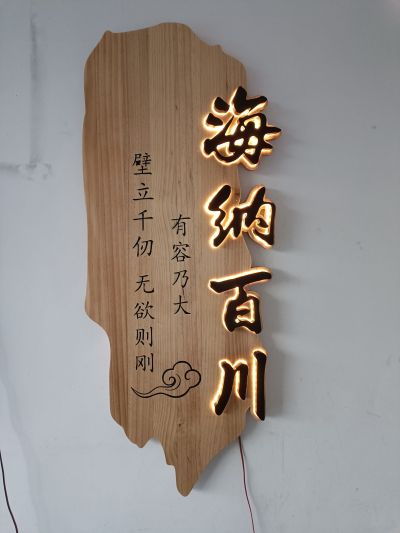 海纳百川
有容乃大
壁立千仞 无欲则刚